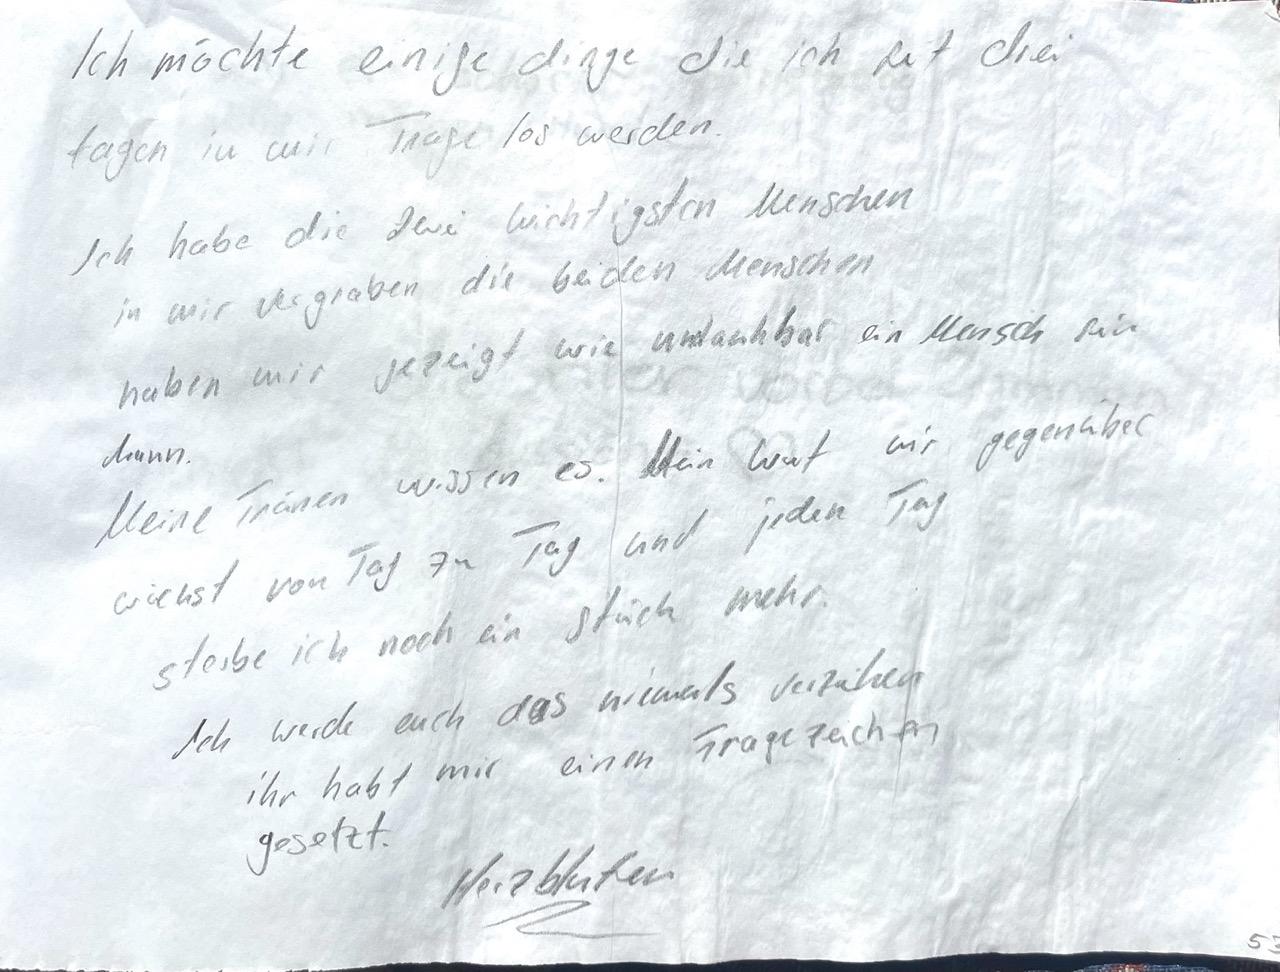 Ich möchte einige dinge die ich seit drei
tagen in mir Trage los werden.
Ich habe die zwei wichtigsten Menschen
in mir vergraben die beiden Menschen
haben mir gezeigt wie undankbar ein Mensch sein
kann.
Meine Tränen wissen es. Mein wut mir gegenüber
wächst von Tag zu Tag und jeden Tag
sterbe ich noch ein stück mehr.
Ich werde euch das niemals verzeihen
ihr habt mir einen Fragezeichen
gesetzt.
Herzbluten